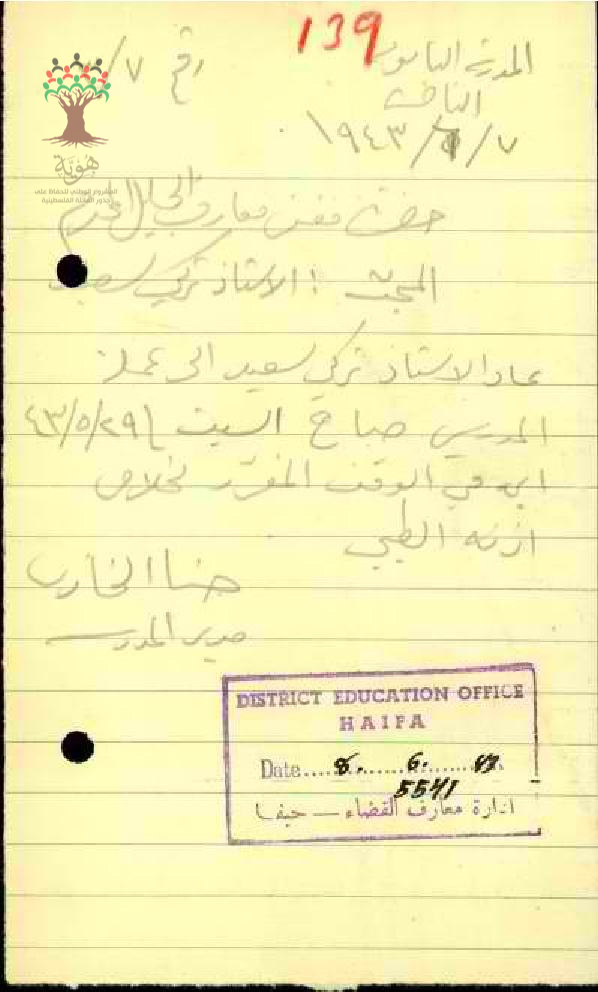 139
المدرسة الثانوية
رقم ٣/٧
١٩٤٣/٦/٧
هوية
المشروع الوطني للحفاظ على
جذور العائلة الفلسطينية
حضرة مفتش معارف الجليل المحترم
المبحث : الأستاذ تركي سعيد
عاد الاستاذ تركي سعيد الى عمله
المدرسي صباح السبت ٤٣/٥/٢٩
اي في الوقت المقرر لخلاص
اذنه الطبي
حنا الخازن
مدير المدرسة
DISTRICT EDUCATION OFFICE
HAIFA
Date 8. 6. 43
5541
ادارة معارف القضاء — حيفا